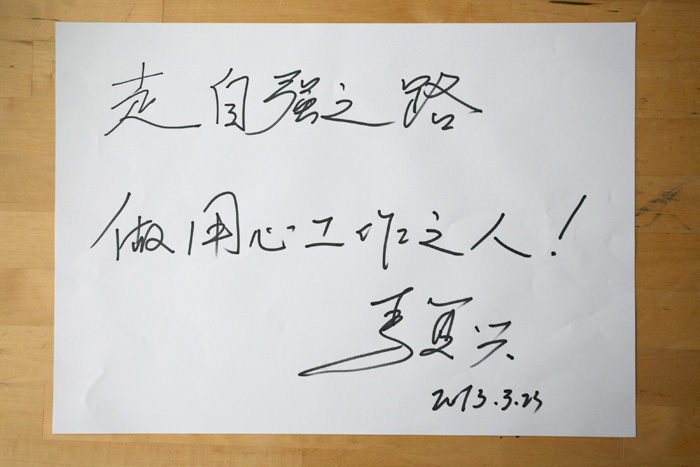 走自强之路
做用心工作之人!
复兴
2013.3.23